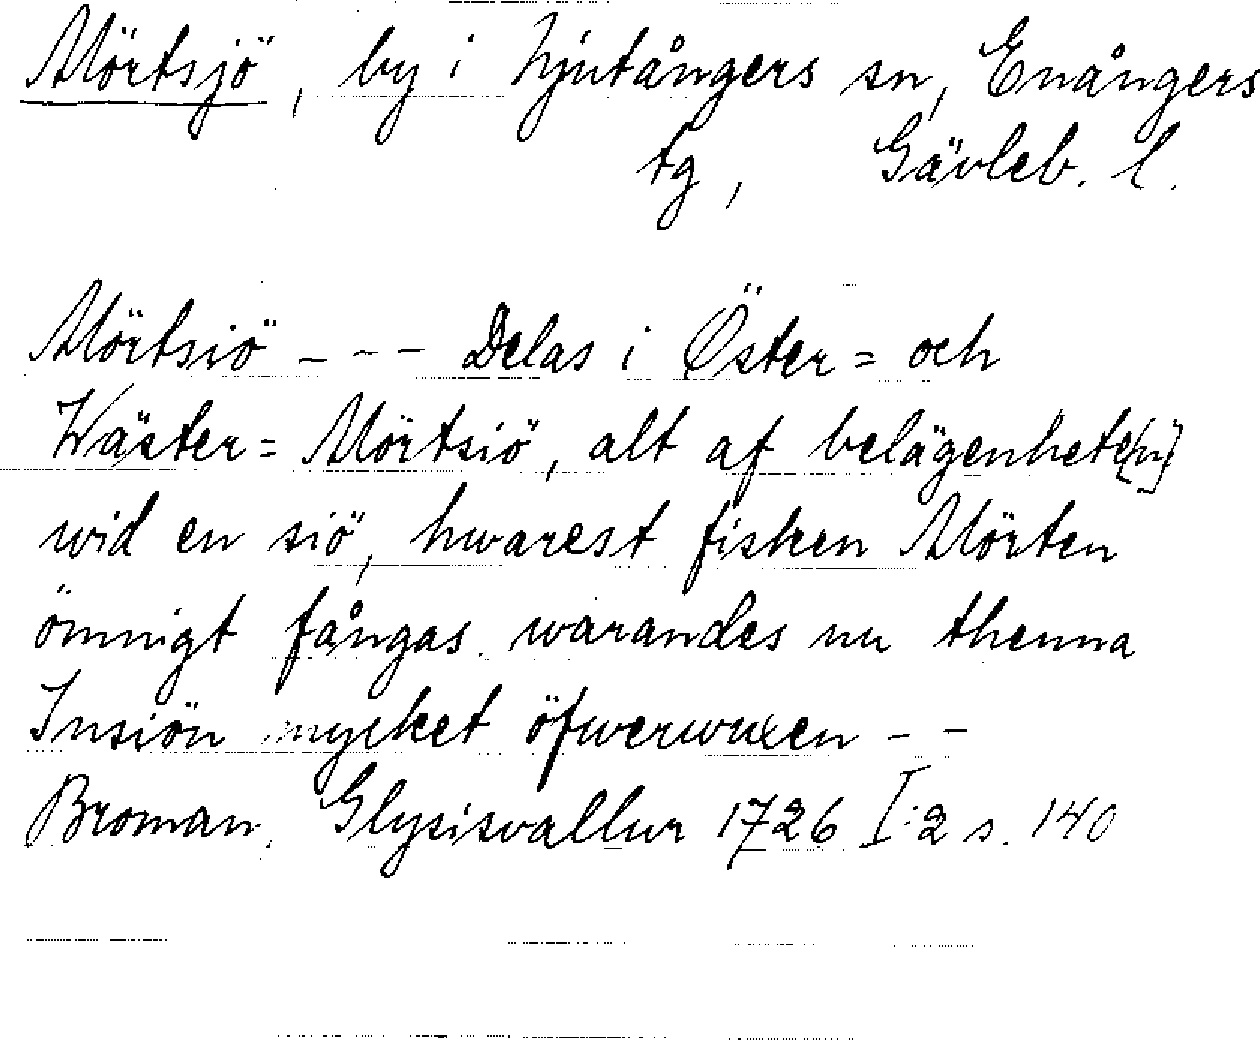 Mörtsjö, by i Njutångers sn, Enångers
tg, Gävleb. l.
Mörtsiö - - - Delas i Öster= och
Wäster= Mörtsiö, alt af belägenhete[n]
wid en siö, hwarest fisken Mörten
ömnigt fångas. warandes nu thenna
Insiön mycket öfwerwuxen - -
Broman, Glysisvallur 1726 I:2 s. 140